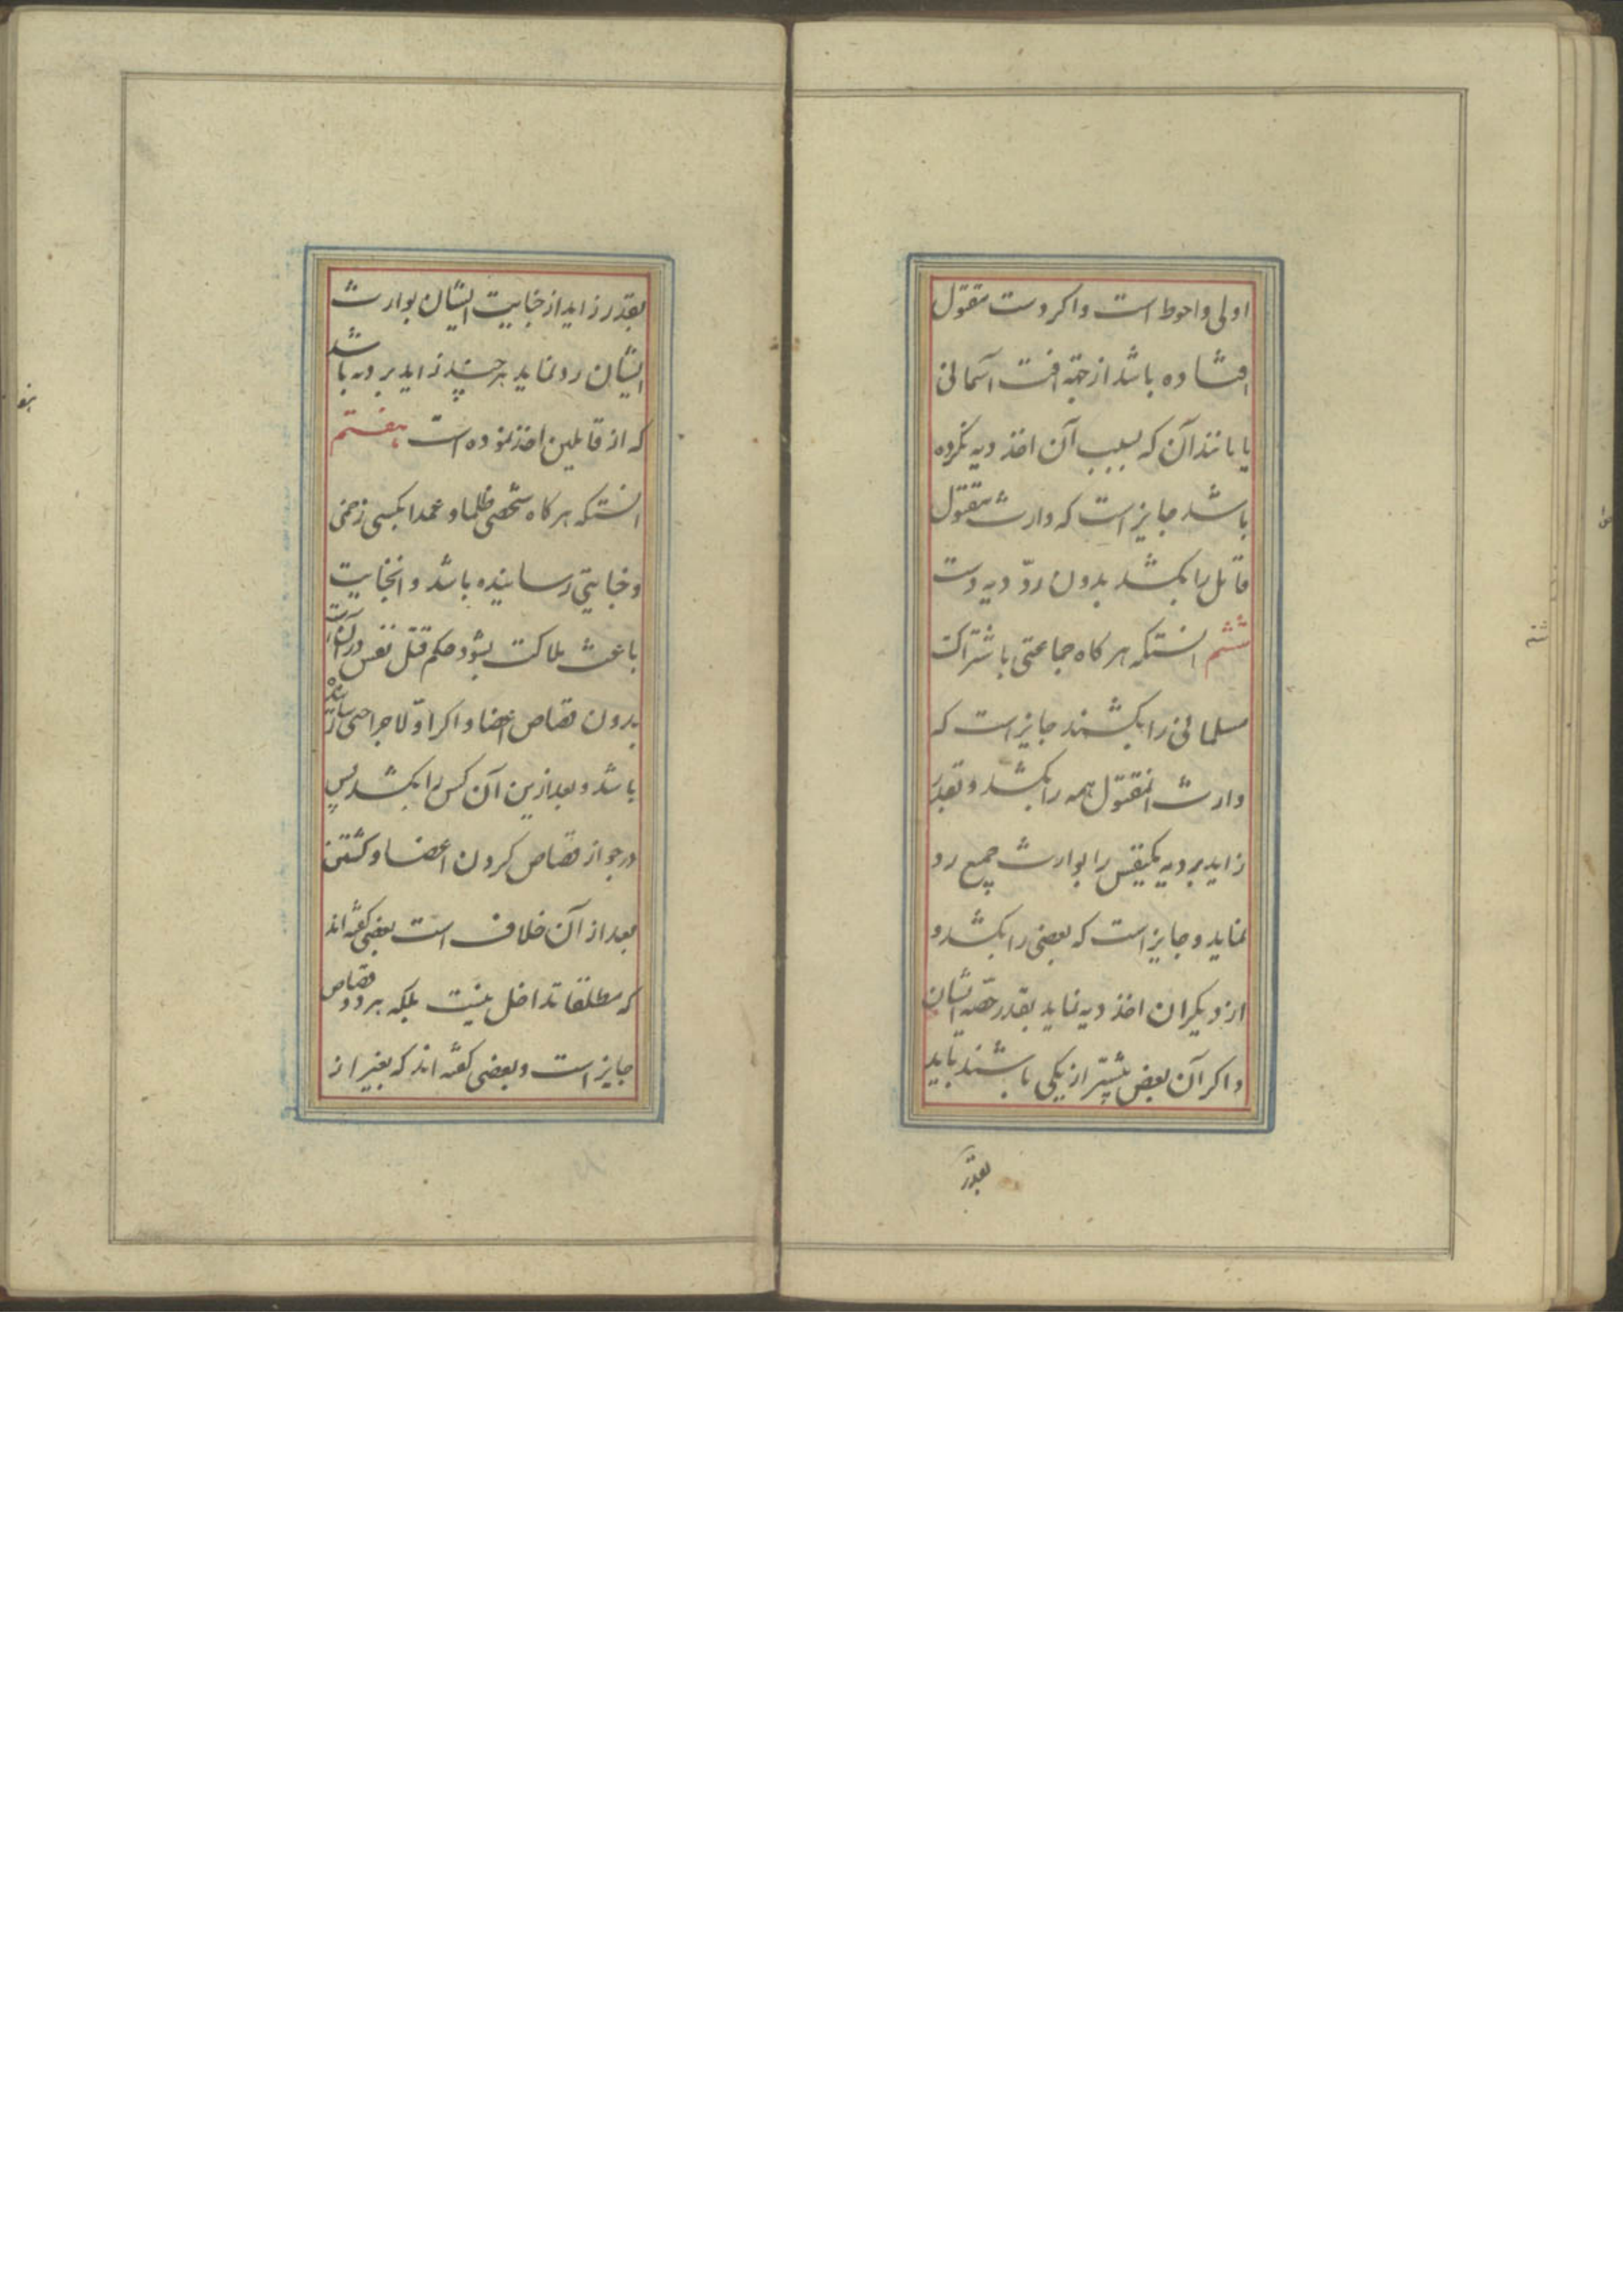 اولی و احوط است و اکر دست مقتول
افتاده باشد از جهة افت آسمانی
یا مانند آن که بسبب آن اخذ دیه نکرده
باشد جایز است که وارث مقتول
قاتل را بکشد بدون ردّ دیه دست
ششم انستکه هر کاه جماعتی باشتراکت
مسلمانی را بکشند جایز است که
وارث انمقتول همه را بکشد و بقدر
زاید بر دیه یکنفس را بوارث جمیع رد
نماید و جایز است که بعضی را بکشد و
از دیکران اخذ دیه نماید بقدر حصّه ایشان
و اکر آن بعض بیشتر از یکی باشند باید
بقدر
بقدر زاید از جنایت ایشان بوارث
ایشان رد نماید هر چند زاید بر دیه باشد
که از قاتلین اخذ نموده است هفتم
انستکه هر کاه شخصی ظلما و عمدا بکسی زخمی
و جنایتی رسانیده باشد و انجنایت
باعث هلاکت بشود حکم قتل نفس در آن است
بدون قصاص اعضا و اکر اوّلا جراحتی رسانیده
باشد و بعد ازین آن کس را بکشد پس
در جواز قصاص کردن اعضا و کشتن
بعد از آن خلاف است بعضی کفته اند
که مطلقا تداخل نیست بلکه هر دو قصاص
جایز است و بعضی کفته اند که بغیر از